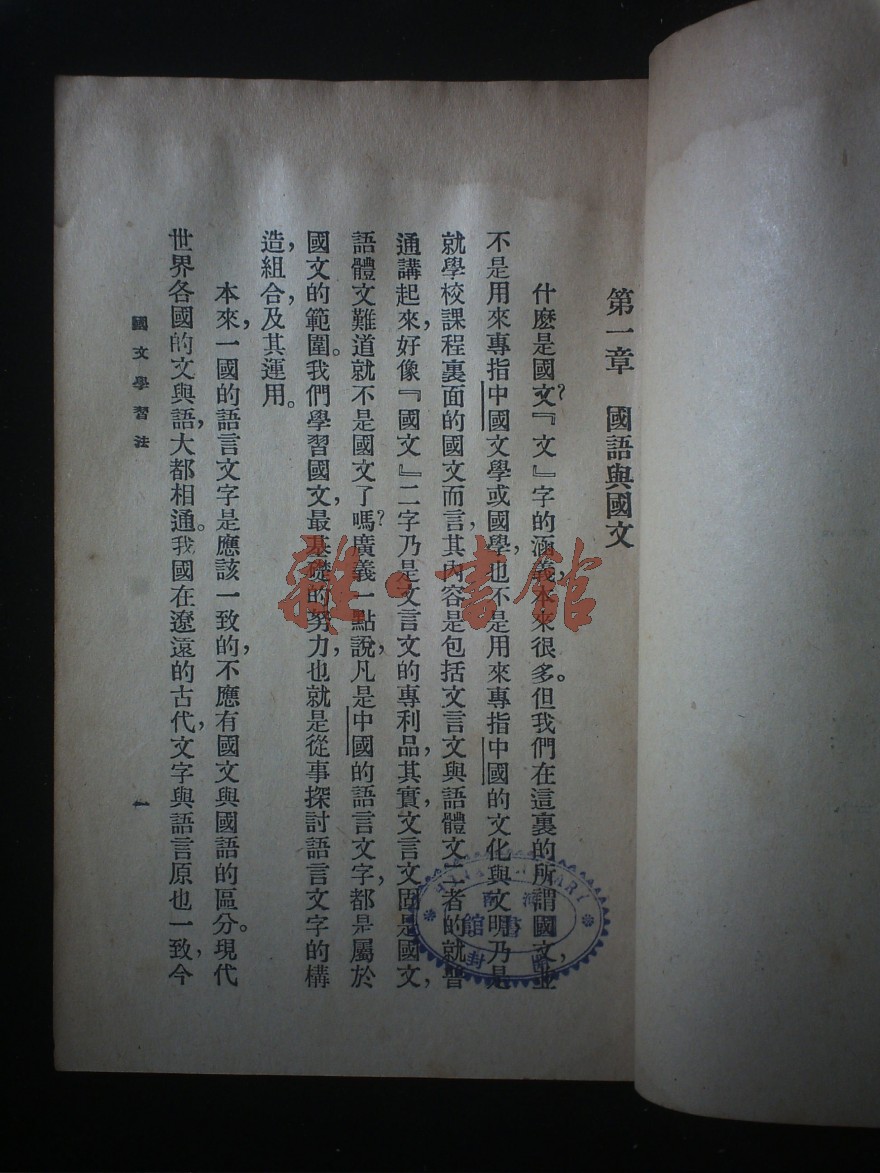 第一章　國語與國文
什麽是國文？『文』字的涵義，本來很多。但我們在這裏的所謂國文，並
不是用來專指中國文學或國學，也不是用來專指中國的文化與文明，乃是
就學校課程裏面的國文而言，其內容是包括文言文與語體文二者的。就普
通講起來，好像『國文』二字乃是文言文的專利品，其實，文言文固是國文，
語體文難道就不是國文了嗎？廣義一點說，凡是中國的語言文字，都是屬於
國文的範圍。我們學習國文，最基礎的努力，也就是從事探討語言文字的構
造，組合，及其運用。
本來，一國的語言文字是應該一致的，不應有國文與國語的區分。現代
世界各國的文與語，大都相通。我國在遼遠的古代，文字與語言原也一致，今
國文學習法
一
雜·書館
書館